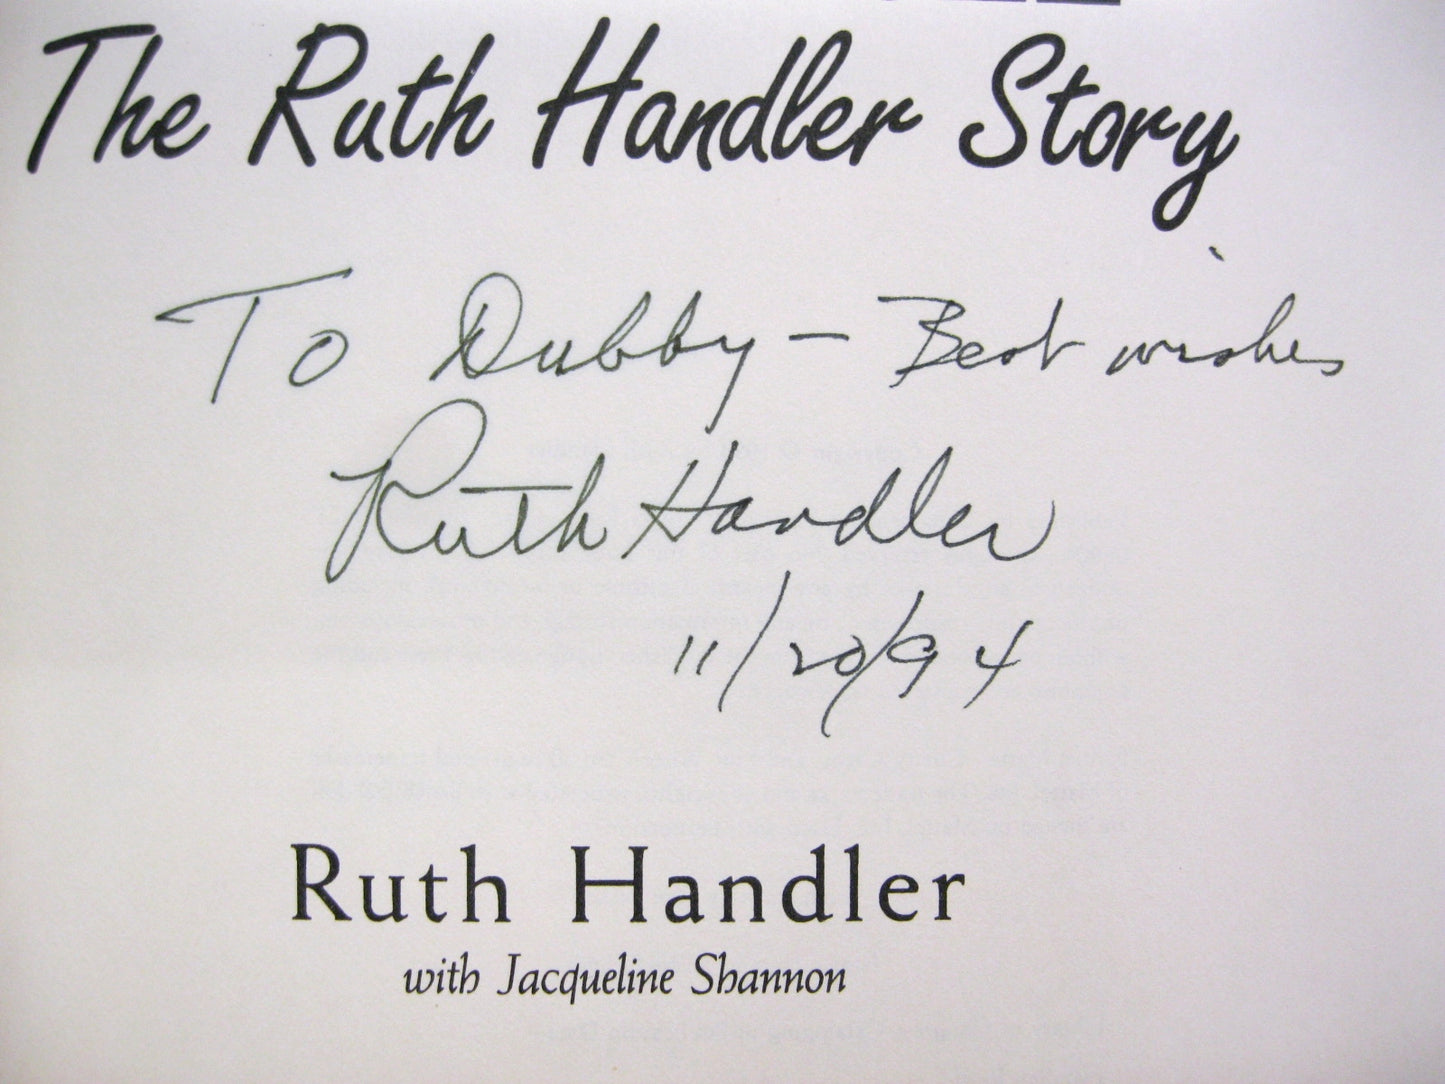 The Ruth Handler Story
To Dubby – Best wishes
Ruth Handler
11/20/94
Ruth Handler
with Jacqueline Shannon